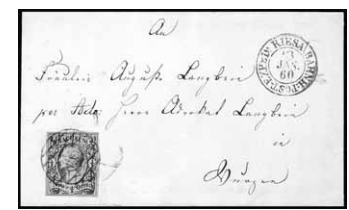 An
Fräulein Auguste Langbein
per Adr. Herrn Advokat Langbein
in
Wurzen
RIESA BAHNH: POST-EXPED:
JAN.
60